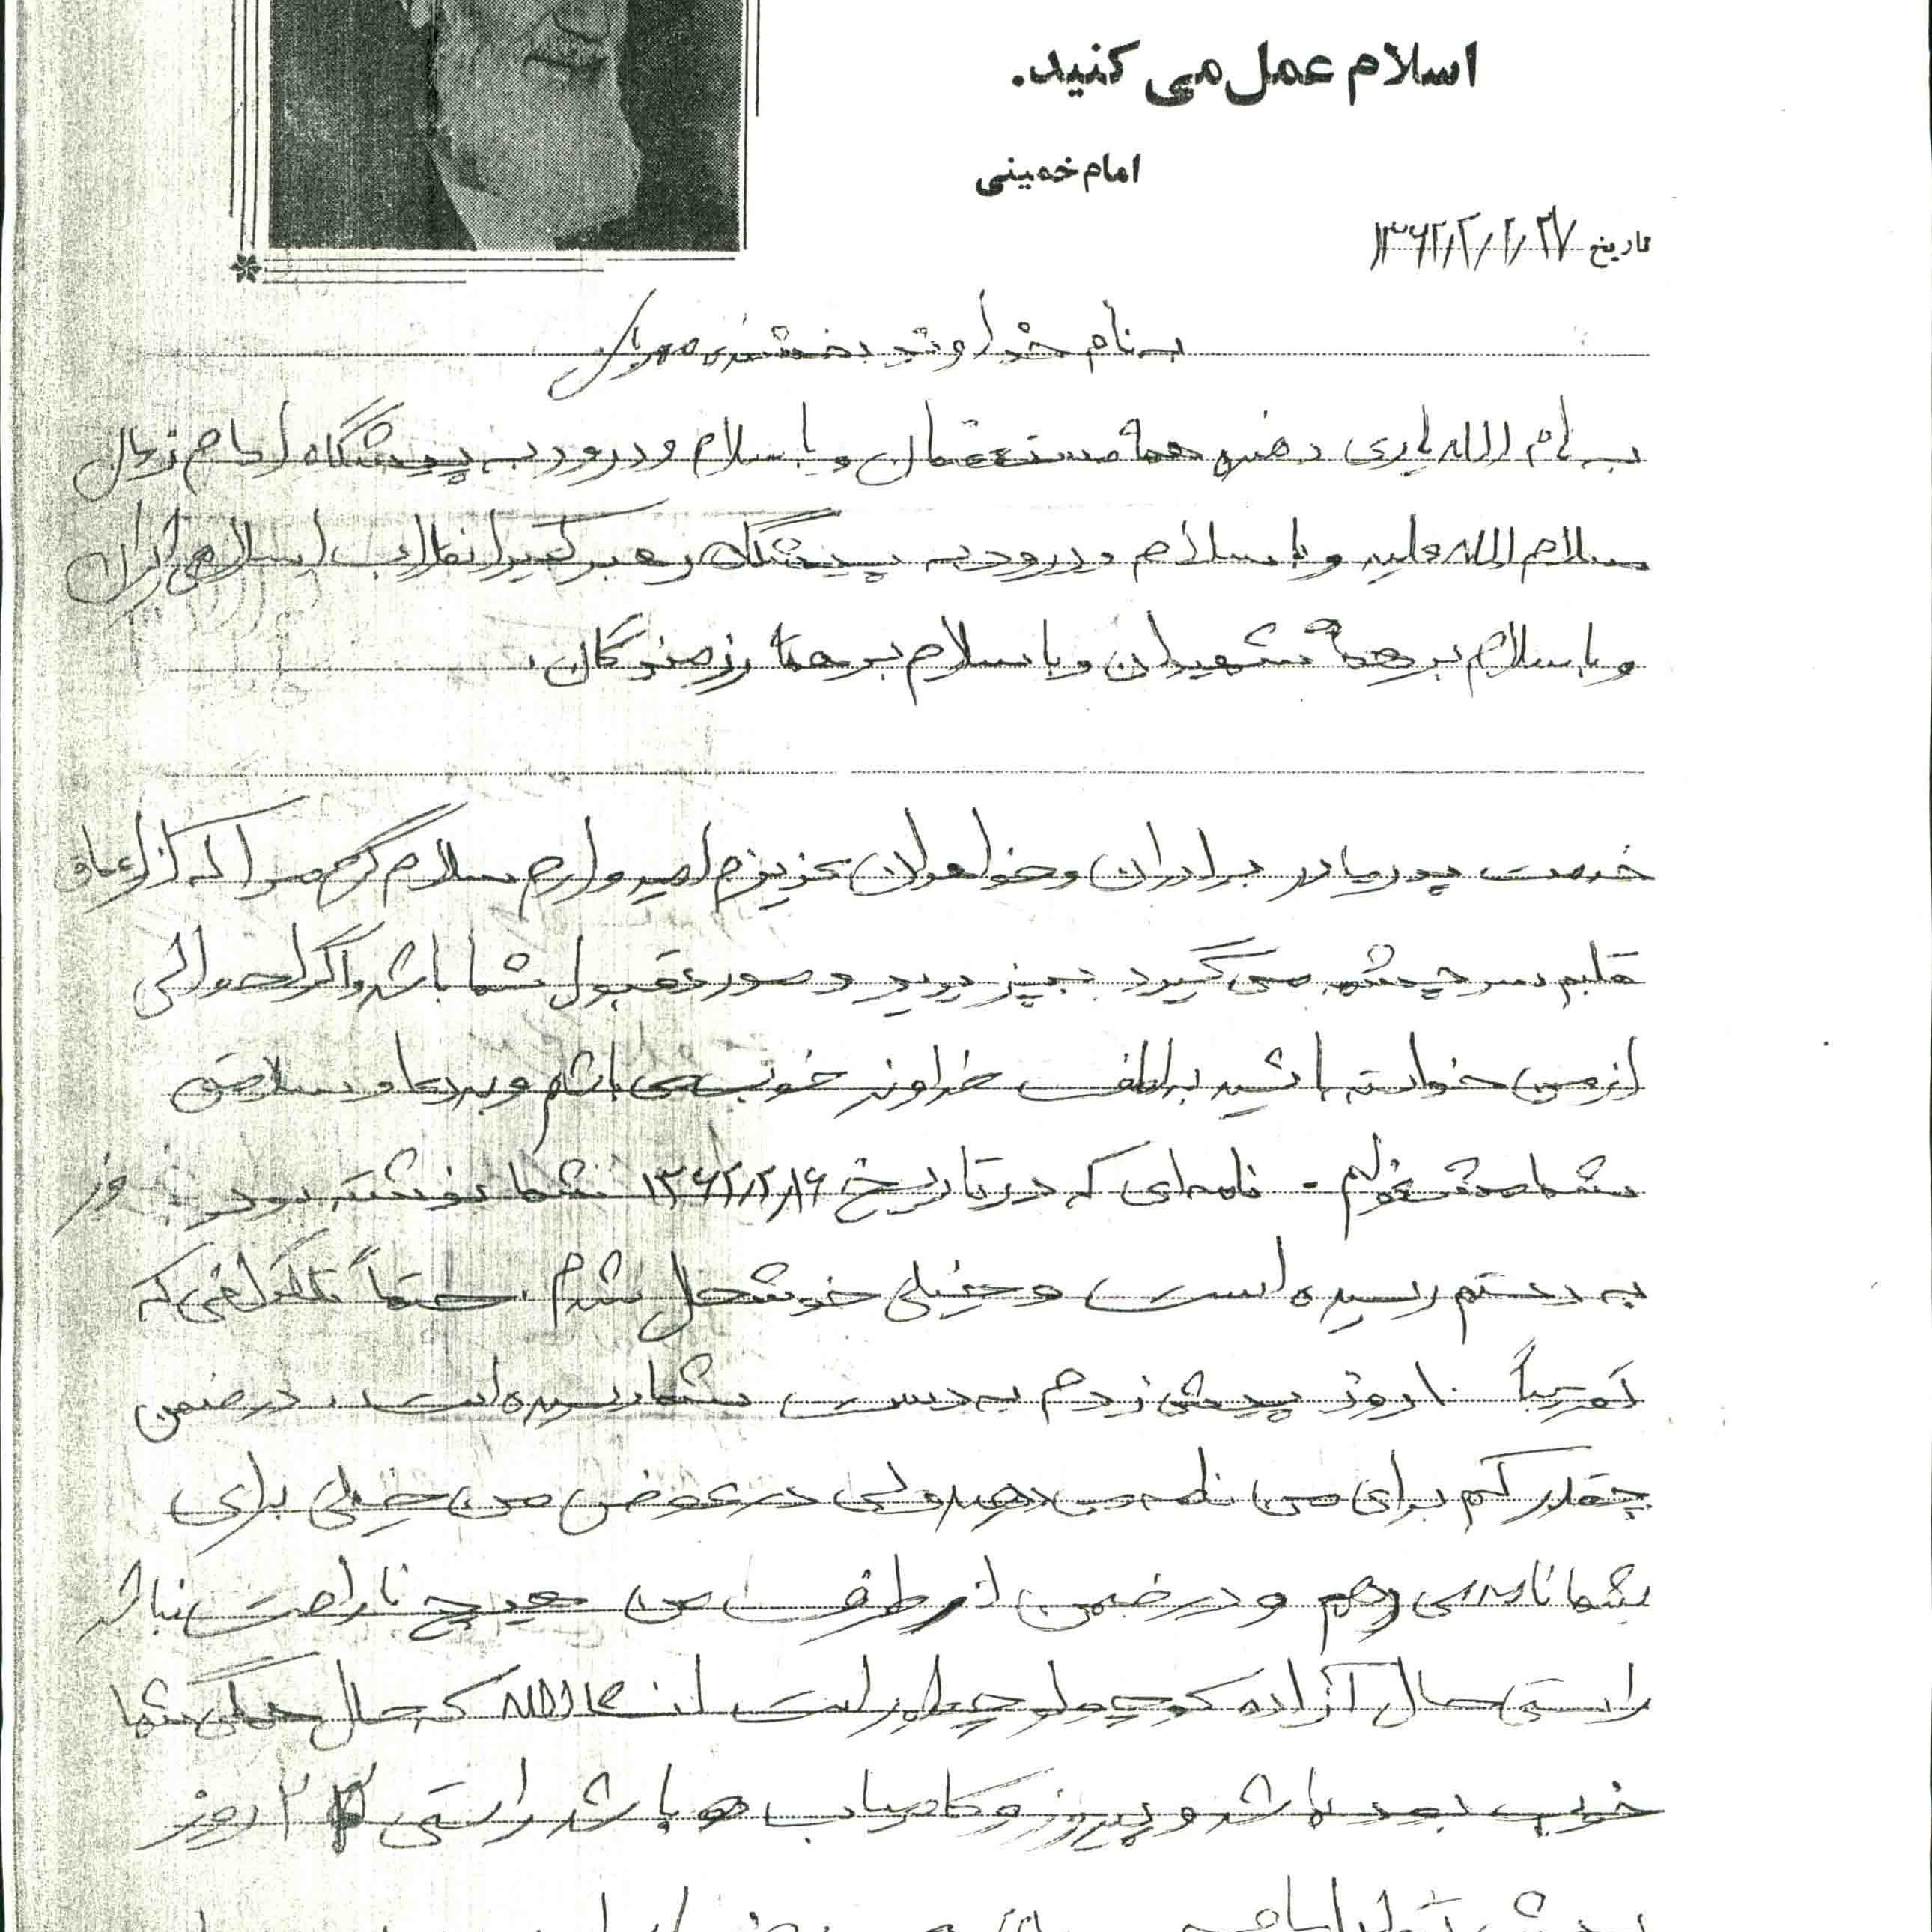 اسلام عمل می کنید.
امام خمینی
تاریخ ۱۳۶۲/۲/۲۷
به نام خداوند بخشنده مهربان
به نام الله یاری دهنده همهٔ مستضعفان و با سلام و درود به پیشگاه امام زمان
سلام الله علیه و با سلام و درود به پیشگاه رهبر کبیر انقلاب اسلامی ایران
و با سلام بر همهٔ شهیدان و با سلام بر همهٔ رزمندگان.
خدمت پدر مادر برادران و خواهران عزیزم امیدوارم سلام گرم مرا که از اعماق
قلبم سرچشمه می گیرد بپذیرید و مورد قبول شما باشد و اگر احوالی
از من خواسته باشید به لطف خداوند خوب می باشم و به دعا و سلامتی
شما مشغولم - نامه‌ای که در تاریخ ۱۳۶۲/۲/۱۶ شما نوشته بودید روز
به دستم رسیده است و خیلی خوشحال شدم. حتماً تلگرافی که
تقریباً ۱۰ روز پیش زدم به دست شما رسیده است. در ضمن
چقدر کم برای من نامه می دهید ولی در عوض من خیلی برای
شما نامه می دهم و در ضمن از طرف من هیچ ناراحت نباشید
راستی حال آزاده کوچولو چطور است انشاءالله که حال همگی شما
خوب بوده باشد و پیروز و کامیاب باشد راستی روز